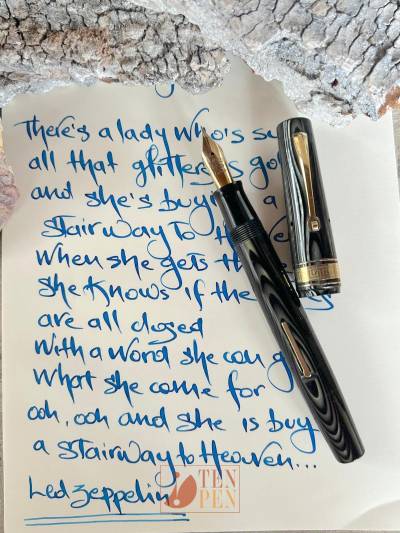 There's a lady who's su
all that glitters is go
and she's buy a
Stairway To H ve
When she gets th
she knows if the s
are all closed
With a word she can g
What she came for
ooh, ooh and she is buy
a Stairway to Heaven...
Led Zeppelin
TEN
PEN